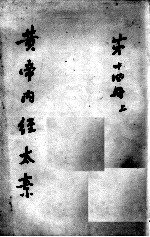 第十四册上
黄帝内径太素